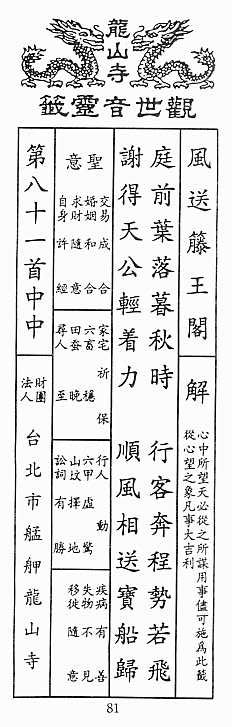 龍山寺
觀世音靈籤
風送籐王閣
解
心中所望天必從之所謀用事儘可施為此籤
從心望之象凡事大吉利
庭前葉落暮秋時 行客奔程勢若飛
謝得天公輕着力 順風相送寶船歸
聖意
交易成合
婚姻和合
求財隨意
自身許經
家宅祈保
六畜穩
田蚕晚
尋人至
行人動
六甲虛驚
山墳擇地
訟詞有勝
疾病有善
失物不見
移徙隨意
第八十一首中中
財團
法人
台北市艋舺龍山寺
81